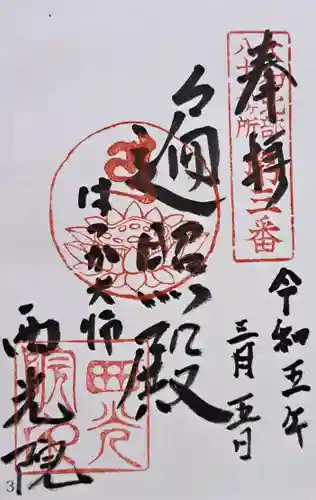 奉拝
八十八ヶ所
三番
令和五年
三月五日
遍照殿
大師
西光院
3